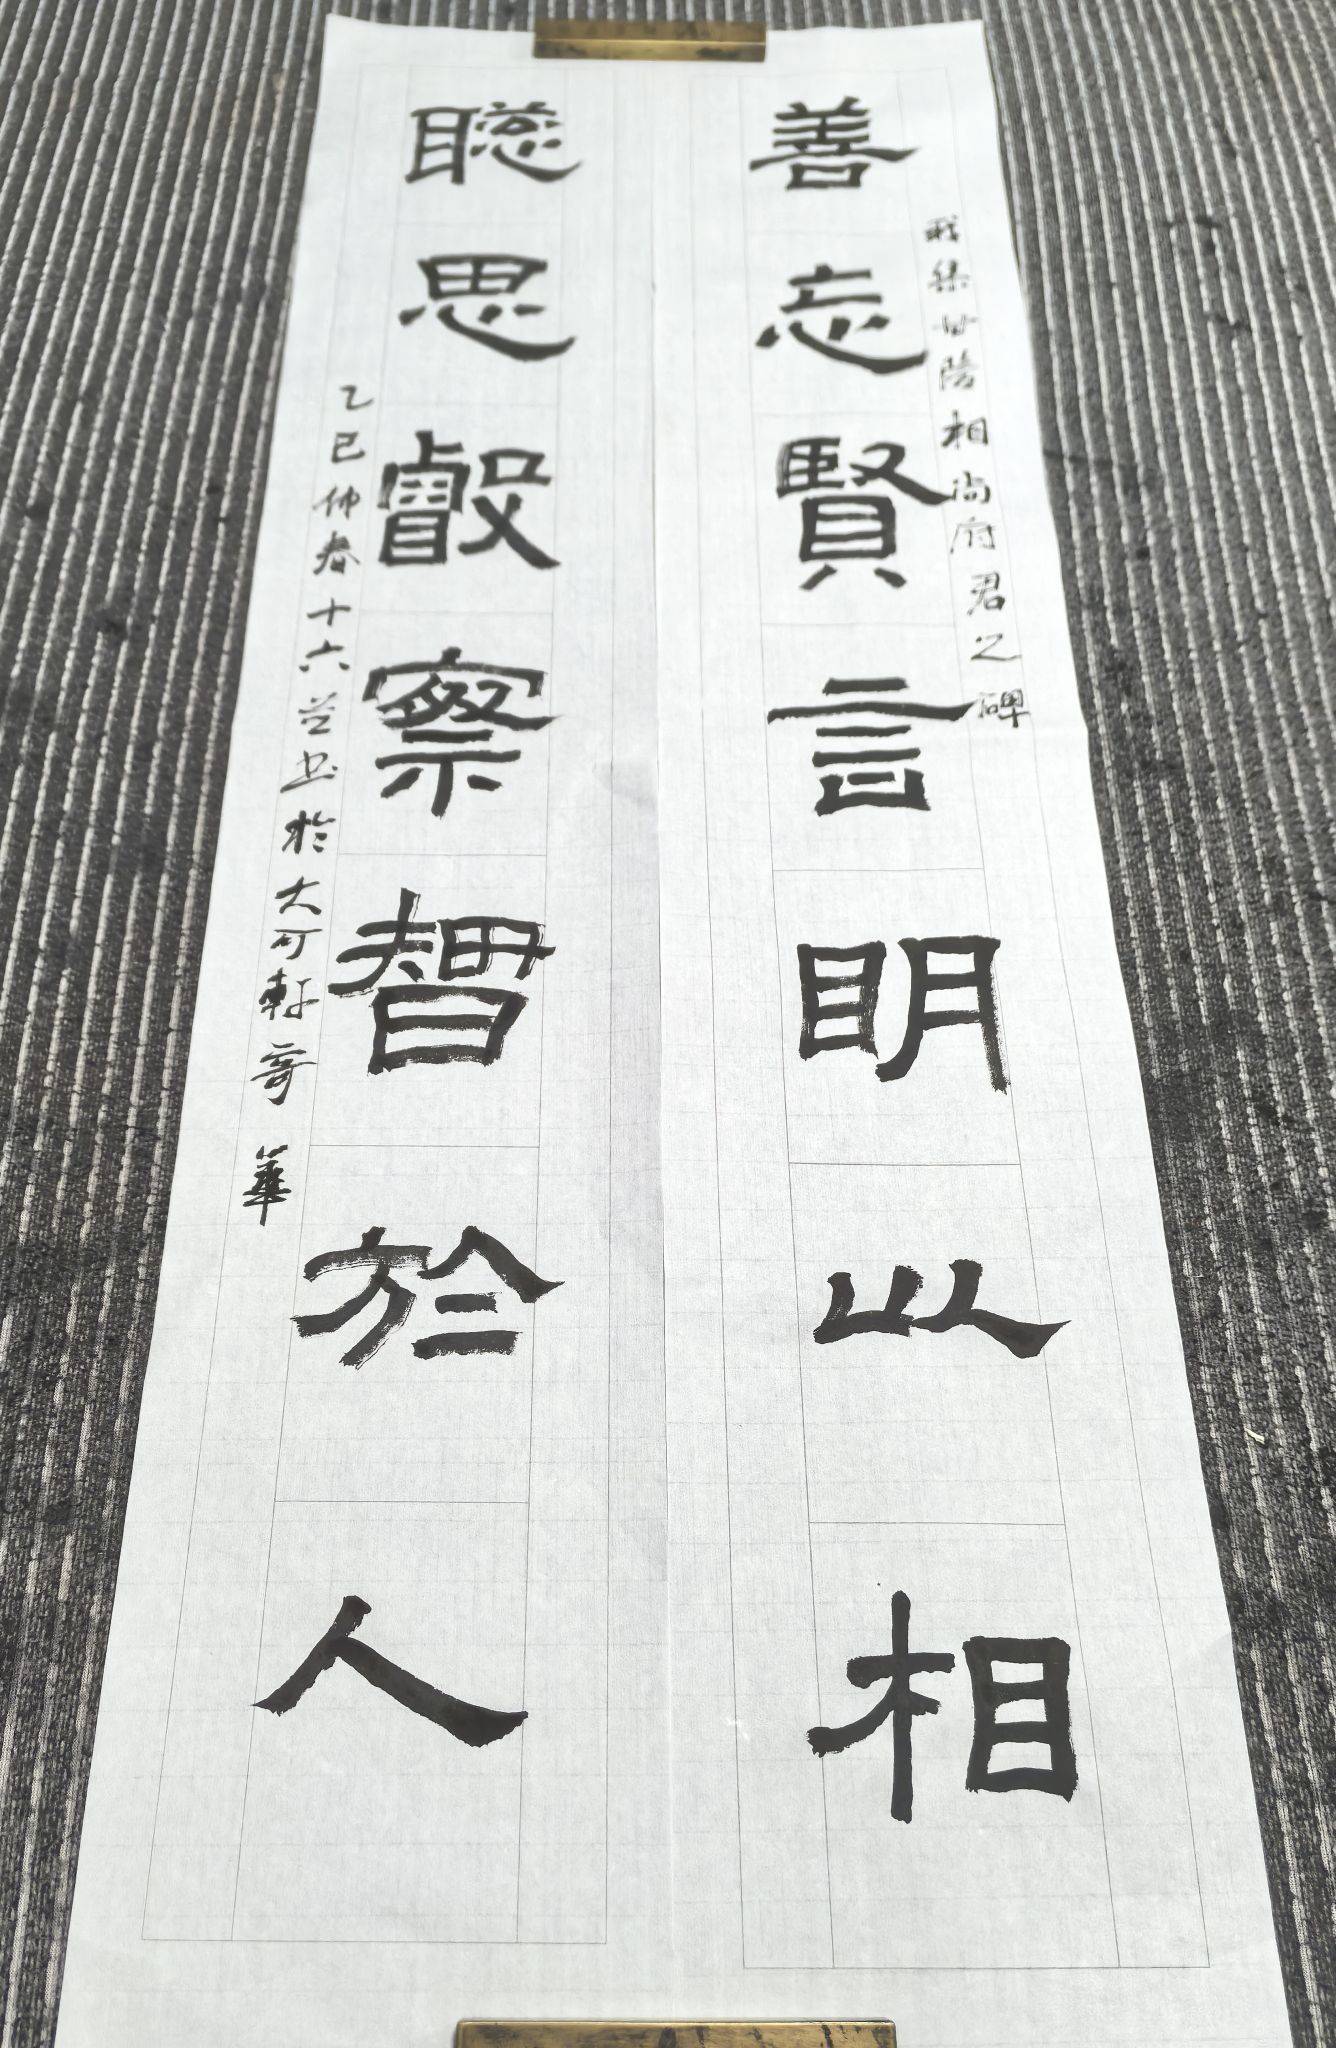 集甘陵相尚府君之碑
善志賢言明以相
聰思叡察智於人
乙巳仲春十六並书於大可軒奇華